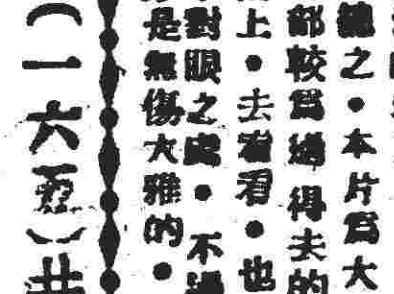 之・本片爲大
部較爲過得去的
上・去看看・也
對眼之處・不過
是無傷大雅的・
（一六頁）共